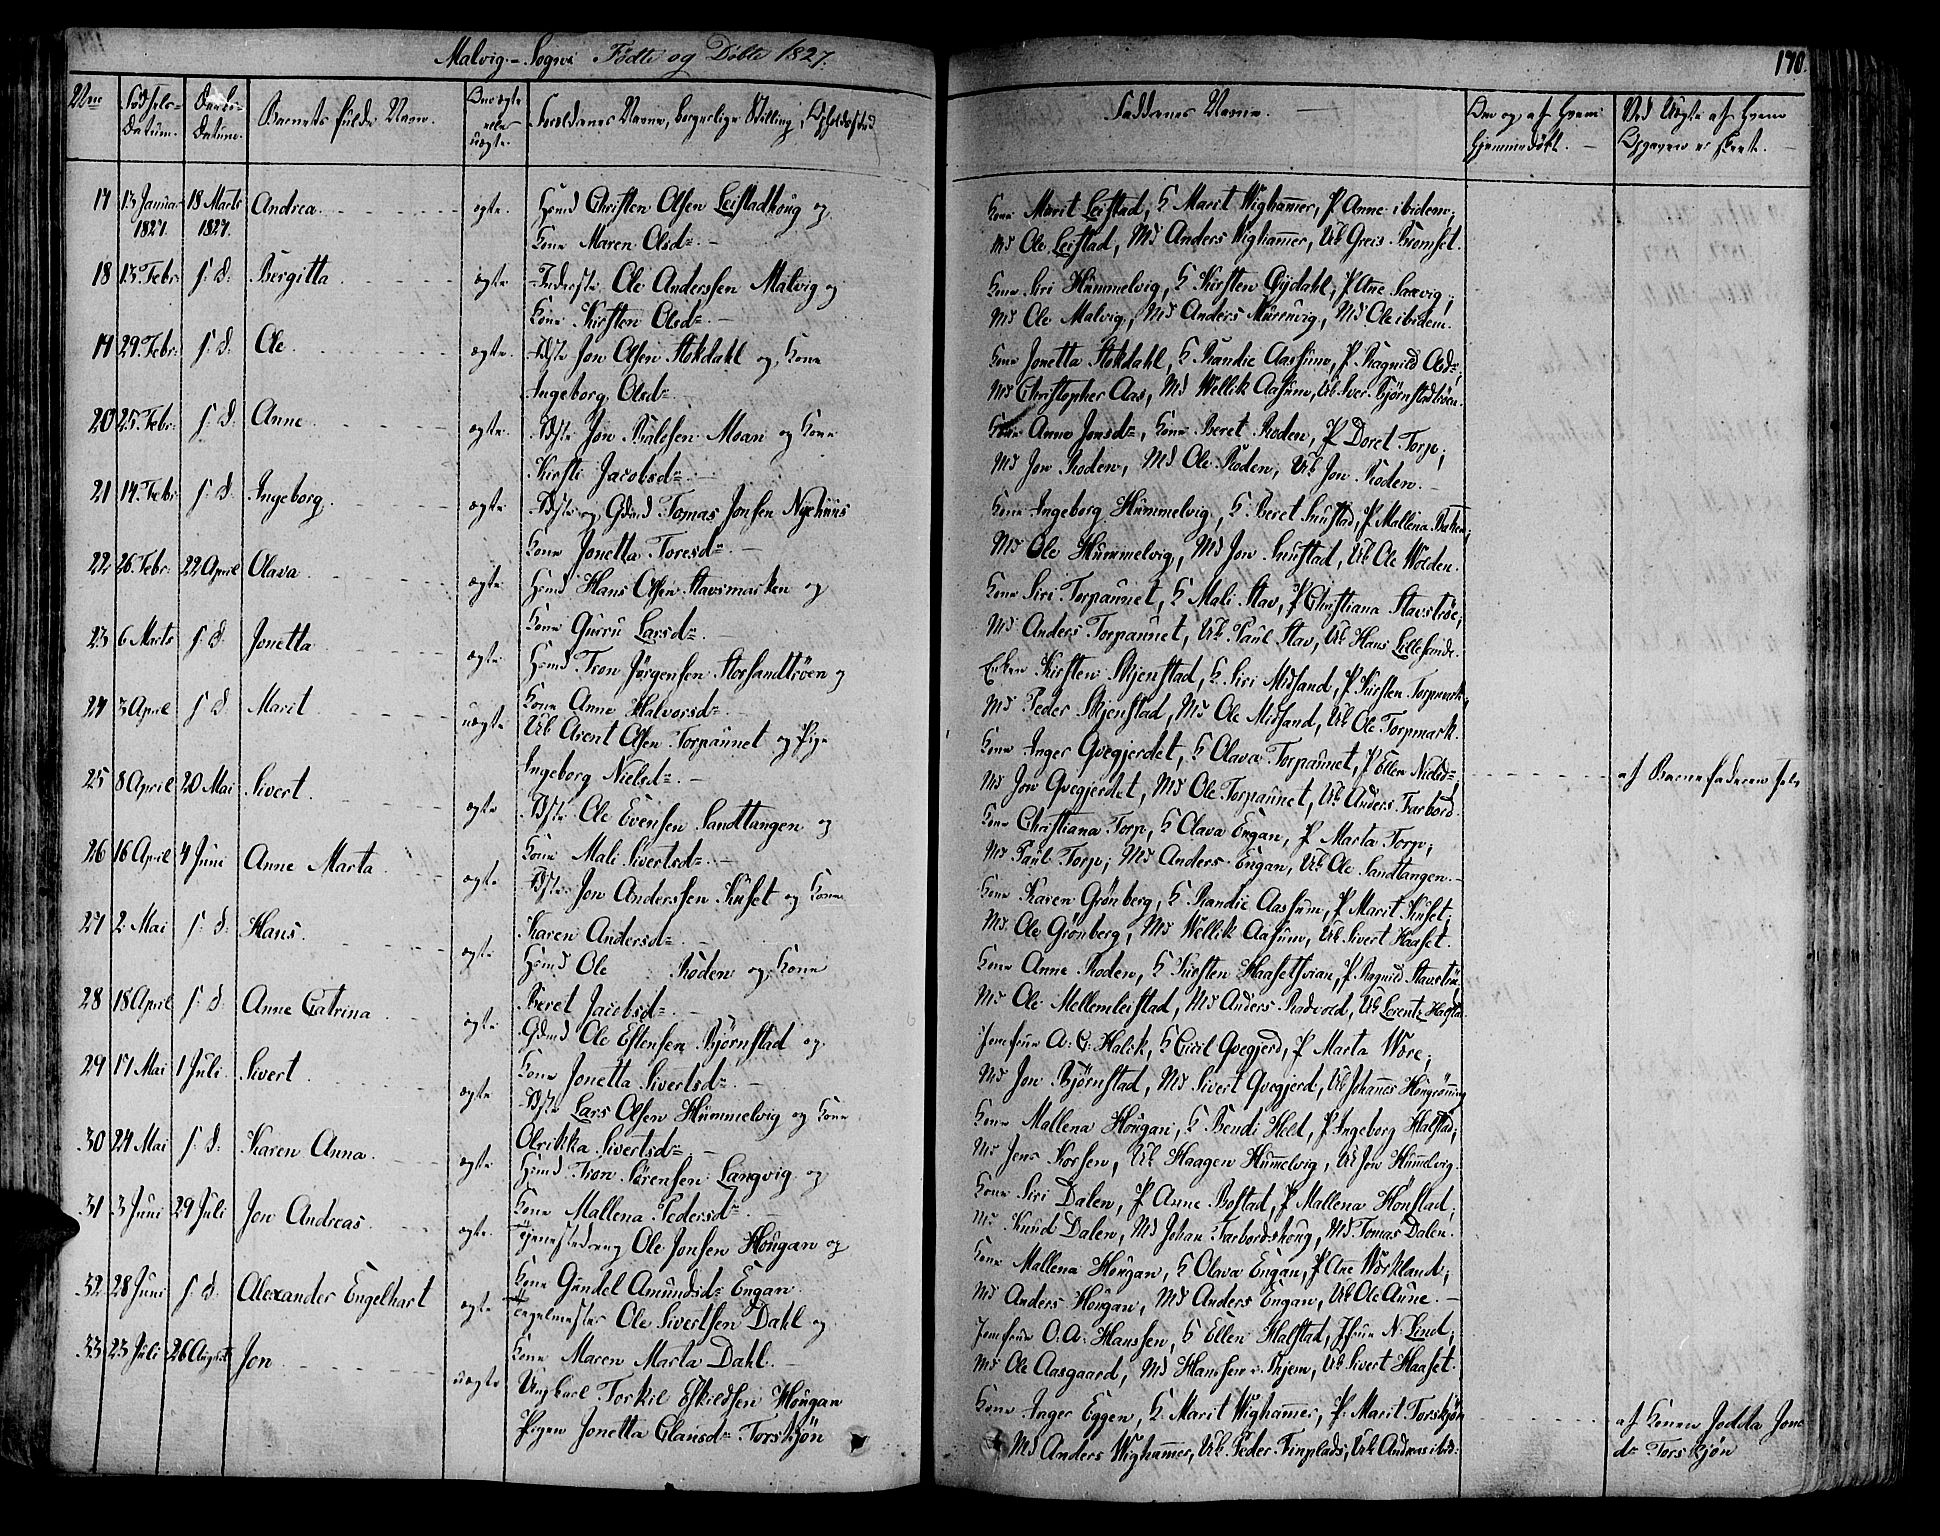 Malvig-Sogns Fødte og Døbte 1827.
170.
Nro
Fødsels-Datum.
Daabs-Datum.
Barnets fulde Navn.
Om ægte eller uægte.
Forældrenes Navne, borgerlige Stilling, Opholdssted
Faddernes Navne.
Om og af hvem hjemmedøbt.
Ved Uægte af hvem Opgaven er skeet.
17 13 Januar 1827. 18 Marts 1827. Andrea ægte. Hmd Christen Olsen Leistadhoug og
Kone Maren Olsd. -
Kone Marit Leistad, K Marit Wighammer, P Anne ibidem;
Md Ole Leistad, Md Anders Wighammer, Uk Greis Bromset.
18 13 Febr. s. d. Bergitta ægte Inderste Ole Anderssen Malvig og
Kone Kirsten Olsd. -
Kone Siri Hummelvig, K Kirsten Dydahl, P Ane Saxvig;
Md Ole Malvig, Md Anders Mürenvig, Md Ole ibidem.
19 29. Febr. s. d. Ole ægte. Idste Jon Olsen Stokdahl og Kone
Ingeborg Olsd.
Kone Jonetta Stokdahl, K Randie Aassum, P. Ragnild Olsd;
Md Christopher Aas, Md Wellik Aasum, Uk Iver Bjørnstadtrøen.
20 25. Febr. s. d. Anne ægte. Idste Jon Moan og Kone
Kirsti Jacobsd. -
Kone Anne Jonsd, Kone Beret Roden, P Doret Torp;
Md Jon Roden, Md Ole Roden, Uk Jon Roden. -
21 14. Febr s. d. Ingeborg. ægte Idste og Gdmd Tomas Jonsen Nyehuus
Kone Jonetta Toresd. -
Kone Ingeborg Hummelvig, K. Beret Snustad, P Mallena
Md Ole Hummelvig, Md Jon Snustad, Uk Ole Wolden.
22 26. Febr. 22 April Olava ægte Hmd Hans Olsen Stavsmarken og
Kone Gurru Larsd. -
Kone Siri Torpaunet, K Mali Stav, P Christiana Stavstrøe;
Md Anders Torpaunet, Uk Paul Stav, Uk Hans Lillesande.
23 6 Marts s. d. Jonetta ægte. Hmd Tron Jørgensen Storsandtrøen og
Kone Anne Halvorsd. -
Enken Kirsten Skjenstad, K. Siri Midsand, P Kirsten Torpmark;
Md Peder Skjenstad, Md Ole Midsand, Uk Ole Torpmark.
24 3 April s. d. Marit uægte Uk Arent Olsen Torpaunet og Pige
Ingeborg Nielsd. -
Kone Inger Qvegjerdet, K Olava Torpaunet, P Ellen Nielsd;
Md Jon Qvegjerdet, Md Ole Torpaunet, Uk Anders Farbord.
af Barnefaderen selv
25 8 April 20 Mai Sivert. ægte Idste Ole Evensen Sandtangen og
Kone Mali Sivertsd. -
Kone Christiana Torp, K Olava Engan, P Marta Torp;
Md Paul Torp, Md Anders Engan, Uk Ole Sandtangen. -
26 16 April 4 Juni Anne Marta ægte Idste Jon Anderssen Kuset og Kone
Karen Andersd. -
Kone Karen Grönberg, K Randie Aassum, P Marit Kuset;
Md. Ole Grönberg, Md Wellik Aasum, Uk Sivert Haaset.
27 2. Mai s. d. Hans. ægte Hmd Ole Roden og Kone
Beret Jacobsd. -
Kone Anne Roden, K Kirsten Haasetsvian, P. Ragnild Stavstrø
Md Ole Mellemleistad, Md Anders Radvold, Uk Lorentz Haastad.
28 18 April s. d. Anne Catrina ægte Gdmd Ole Estensen Bjørnstad og
Kone Jonetta Sivertsd. -
Jomfrue A. C. Halck, K Ciril Qvegjerd, P Marta Wore;
Md Jon Bjørnstad, Md Sivert Qvegjerd, Uk Johannes Hougrønning
29 17 Mai 1 Juli. Sivert ægte Idste Lars Olsen Hummelvig og Kone
Olrikka Sivertsd. -
Kone Mallena Hougan, K Bendi Held, P. Ingeborg Halstad;
Md Jens Korsen, Uk Haagen Hummelvig, Uk Jon Hummelvig.
30 24 Mai s. d. Karen Anna ægte Hmd Tron Sørensen Langvig og
Kone Mallena Pedersd. -
Kone Siri Dalen, P Anne Bostad, P Mallena Honstad;
Md Knud Dalen, Md Johan Farbordshoug, Md Tomas Dalen.
31 3 Juni 29 Juli Jon Andreas. ægte. Tjenestedreng Ole Jonsen Hougan og
Kone Gundel Amundsd Engan.
Kone Mallena Hougan, K Olava Engan, P Ane Workland;
Md Anders Hougan, Md Anders Engan, Uk Ole Aune. -
32 28 Juni s. d. Alexander Engelhart ægte Tegelmester Ole Sivertsen Dahl og
Kone Maren Marta Dahl. -
Jomfrue O. A. Hanssen, K Ellen Halstad, Jfrue N. Lind;
Md Ole Aasgaard, Md Hanssen v. Skjem, Uk Sivert Haaset.
33 23 Juli 26 August Jon uægte Ungkarl Torkil Eskildsen Hougan
Pigen Jonetta Clausd Torskjøn
Kone Inger Eggen, K. Marit Wighammer, P. Marit Torskjøn
Md Anders Wighammer, Uk Peder Finplads, Uk Andreas ibid:
af Konen Jodda Jons
d Torskjøn